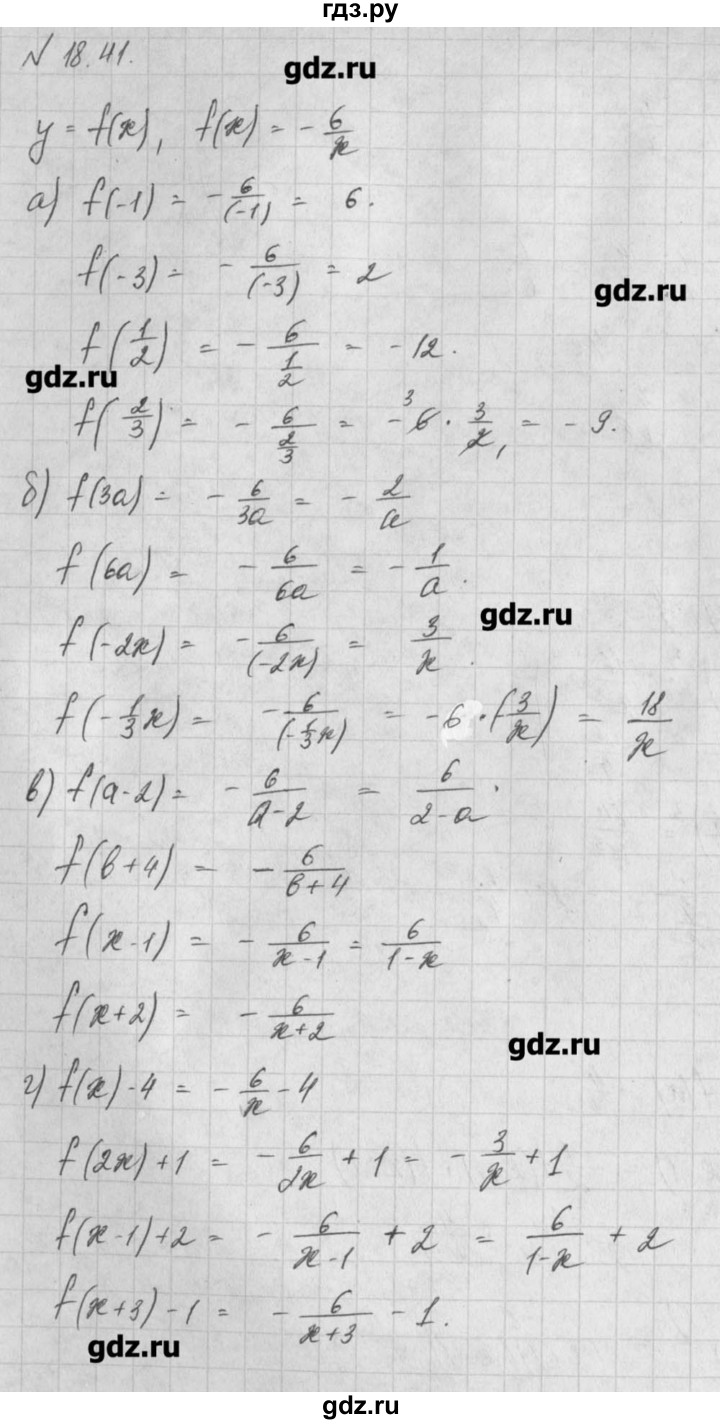 гдз.ру
№ 18.41.
gdz.ru
y = f(x), f(x) = - 6/x
а) f(-1) = - 6/(-1) = 6.
f(-3) = - 6/(-3) = 2
gdz.ru
f(1/2) = - 6/(1/2) = -12.
gdz.ru
f(2/3) = - 6/(2/3) = - 6 3 · 3/2 1 = - 9.
б) f(3a) = - 6/3a = - 2/a
f(6a) = - 6/6a = - 1/a.
gdz.ru
f(-2x) = - 6/(-2x) = 3/x.
f(-1/3 x) = - 6/(-1/3 x) = -6 · (-3/x) = 18/x
в) f(a-2) = - 6/(a-2) = 6/(2-a).
f(b+4) = - 6/(b+4)
f(x-1) = - 6/(x-1) = 6/(1-x)
f(x+2) = - 6/(x+2)
gdz.ru
г) f(x)-4 = - 6/x - 4
f(2x)+1 = - 6/2x + 1 = - 3/x + 1
f(x-1)+2 = - 6/(x-1) + 2 = 6/(1-x) + 2
f(x+3)-1 = - 6/(x+3) - 1.
gdz.ru
gdz.ru